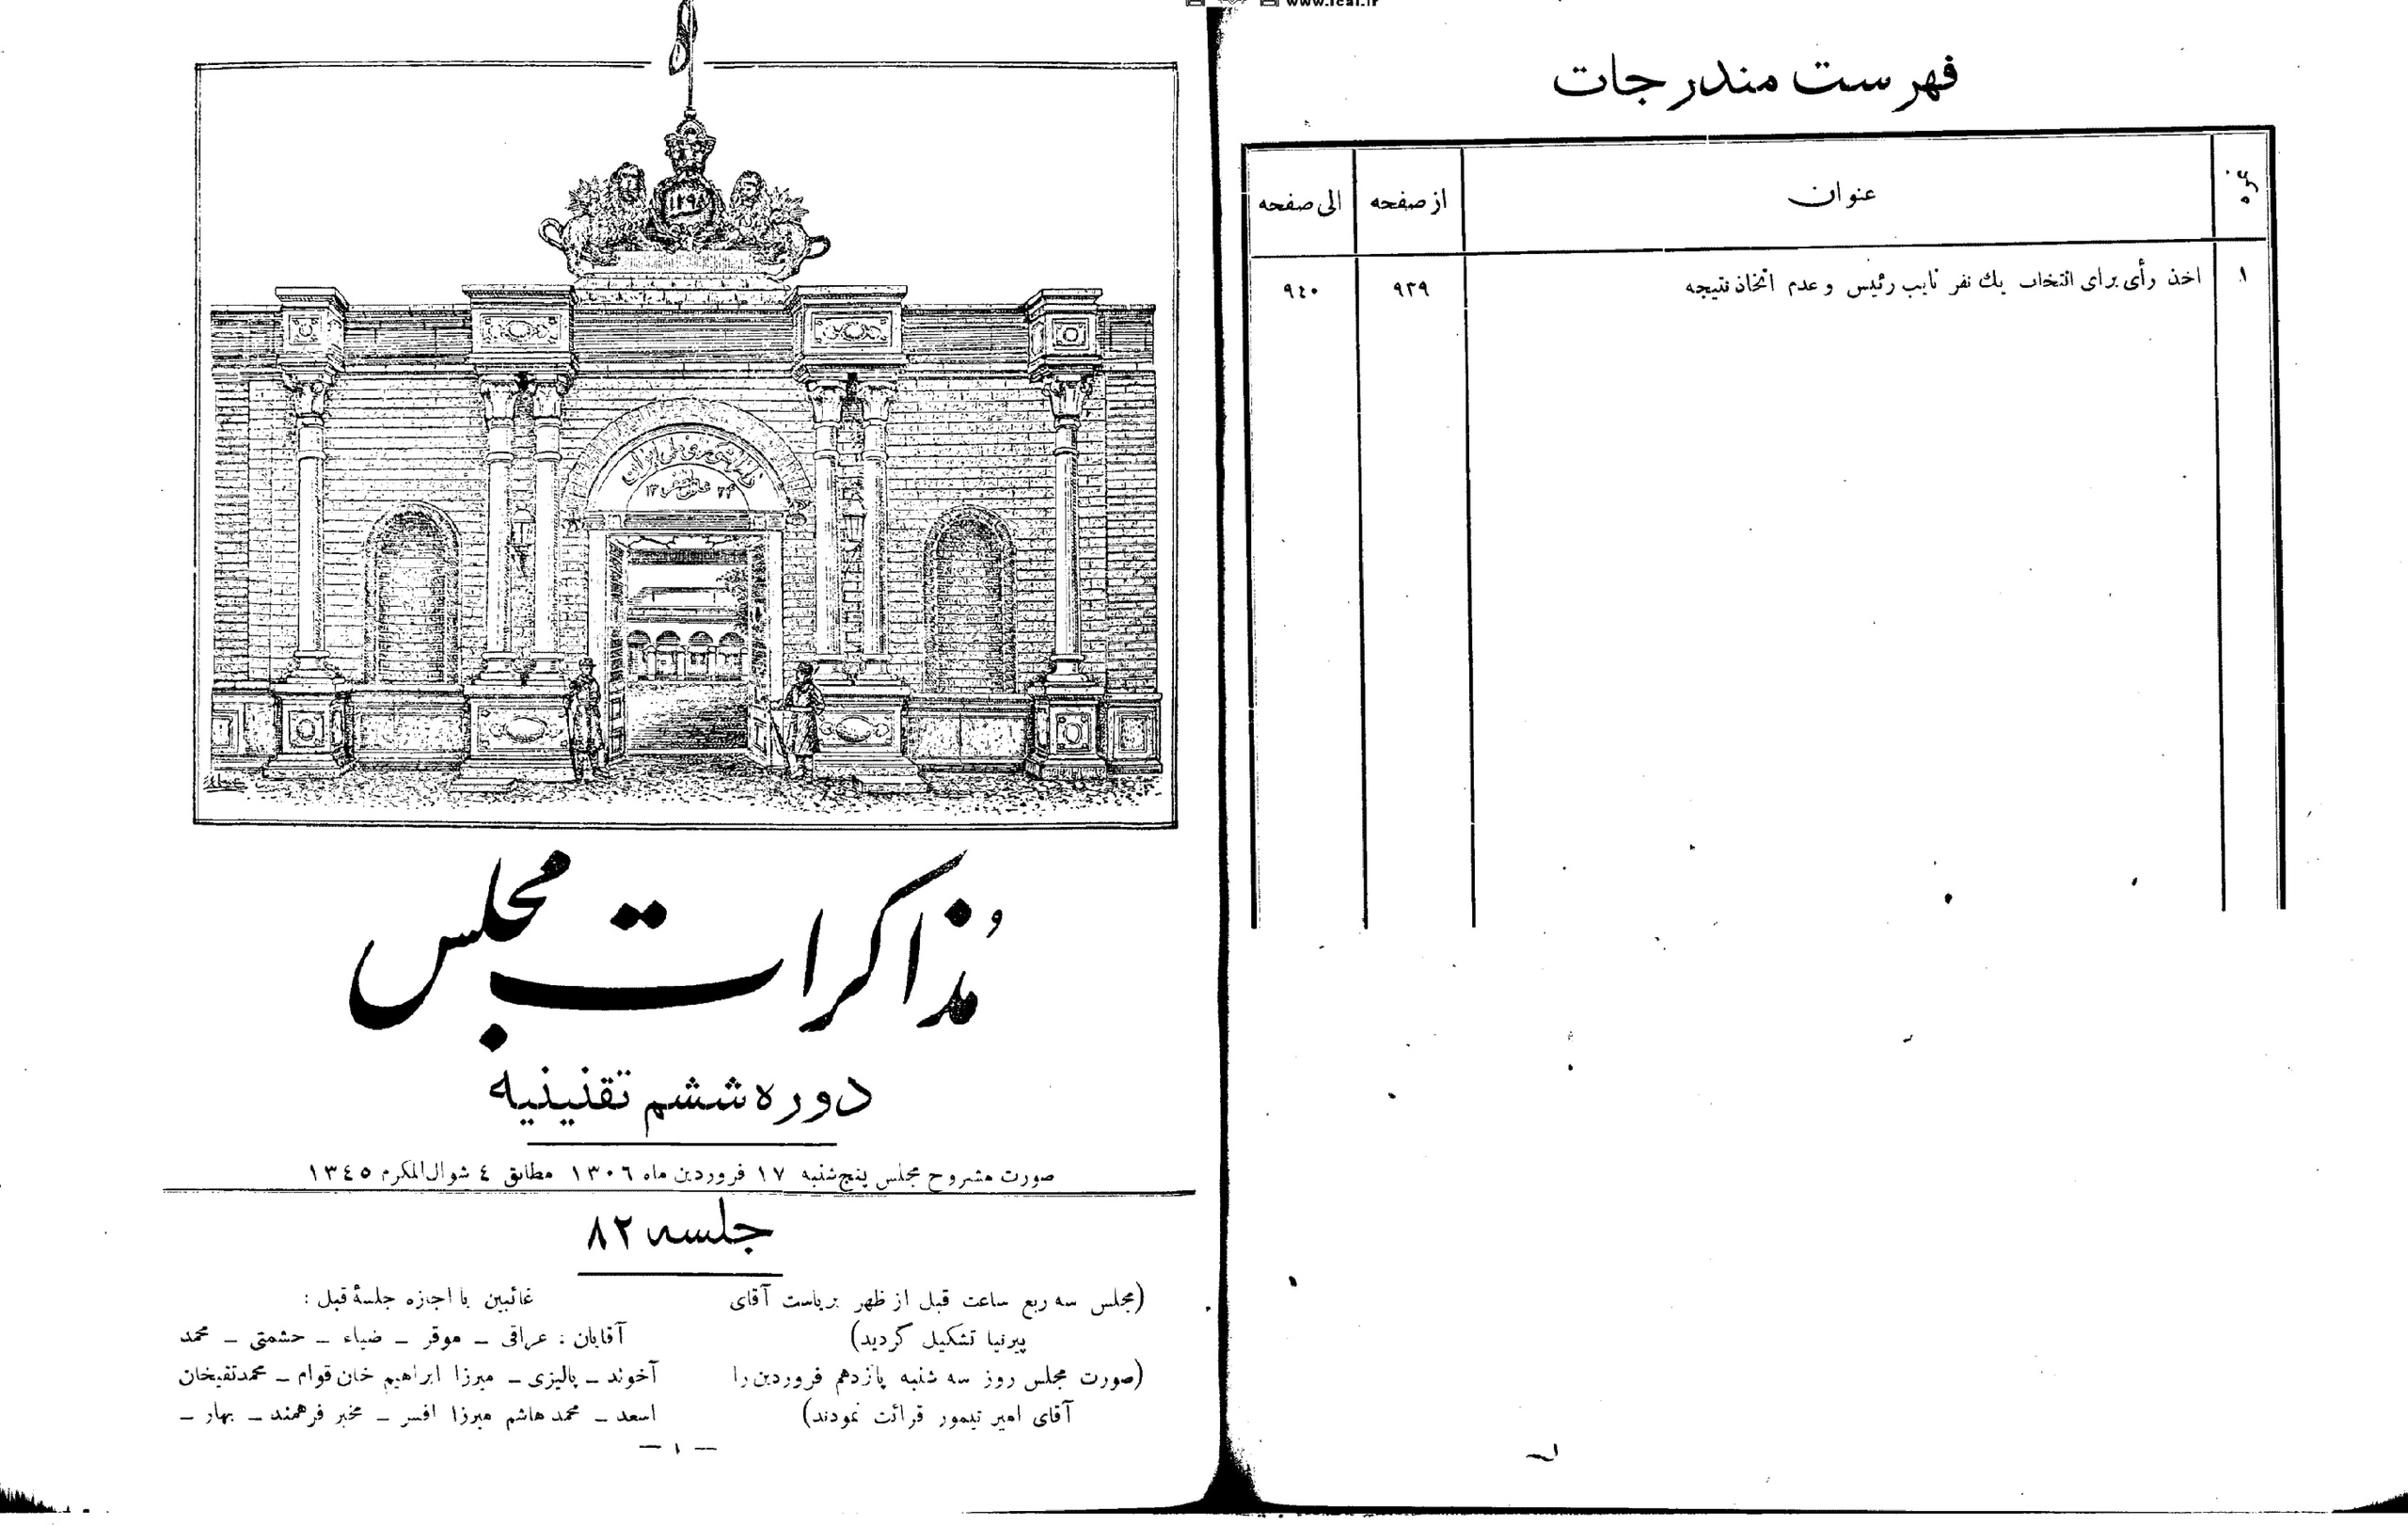 www.ical.ir
فهرست مندرجات
نمره
عنوان
از صفحه
الی صفحه
۱
اخذ رأی برای انتخاب یك نفر نایب رئیس و عدم اتخاذ نتیجه
۹۳۹
۹٤۰
۱۲۹۸
مُذاکرات مجلس
دوره ششم تقنینیه
صورت مشروح مجلس پنج‌شنبه ۱۷ فروردین ماه ۱۳۰٦ مطابق ٤ شوال‌المکرم ۱۳٤٥
جلسه ۸۲
(مجلس سه ربع ساعت قبل از ظهر بریاست آقای
پیرنیا تشکیل گردید)
(صورت مجلس روز سه شنبه پانزدهم فروردین را
آقای امیر تیمور قرائت نمودند)
غائبین با اجازه جلسهٔ قبل :
آقایان : عراقی ـ موقر ـ ضیاء ـ حشمتی ـ محمد
آخوند ـ پالیزی ـ میرزا ابراهیم خان قوام ـ محمدتقیخان
اسعد ـ محمد هاشم میرزا افسر ـ مخبر فرهمند ـ بهار ـ
— ۱ —